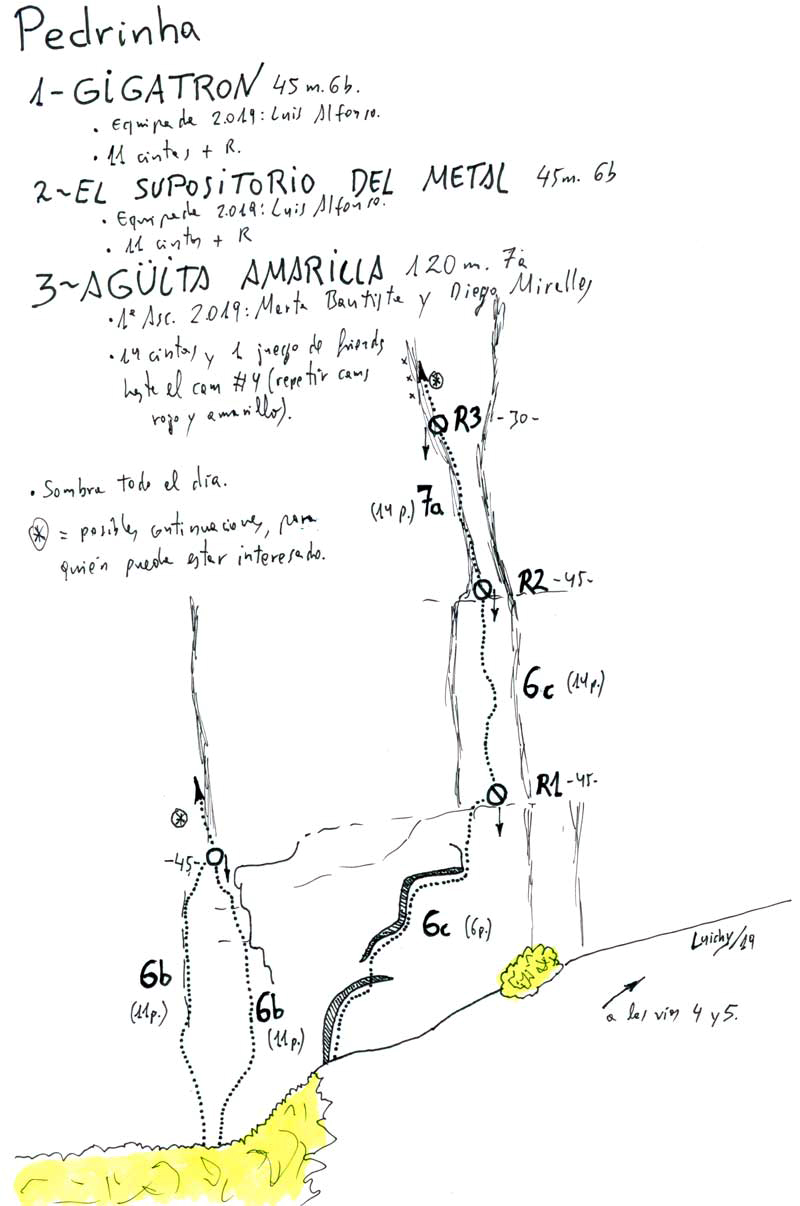 Pedrinha
1-GIGATRON 45 m. 6b.
• Equipada 2.019: Luis Alfonso.
• 11 cintas + R.
2~EL SUPOSITORIO DEL METAL 45m. 6b
• Equipada 2.019: Luis Alfonso.
• 11 cintas + R
3~AGÜITA AMARILLA 120 m. 7a
• 1ª Asc. 2.019: Marta Bautista y Diego Mirelles
• 14 cintas y 1 juego de friends
hasta el cam #4 (repetir cams
rojo y amarillo).
• Sombra todo el día.
* = posibles continuaciones, para
quién pueda estar interesado.
*
R3 -30-
(14 p.) 7a
R2 -45-
6c (14p.)
R1 -45-
*
-45-
6c (6p.)
6b
(11p.)
6b
(11p.)
Luichy/19
a las vías 4 y 5.